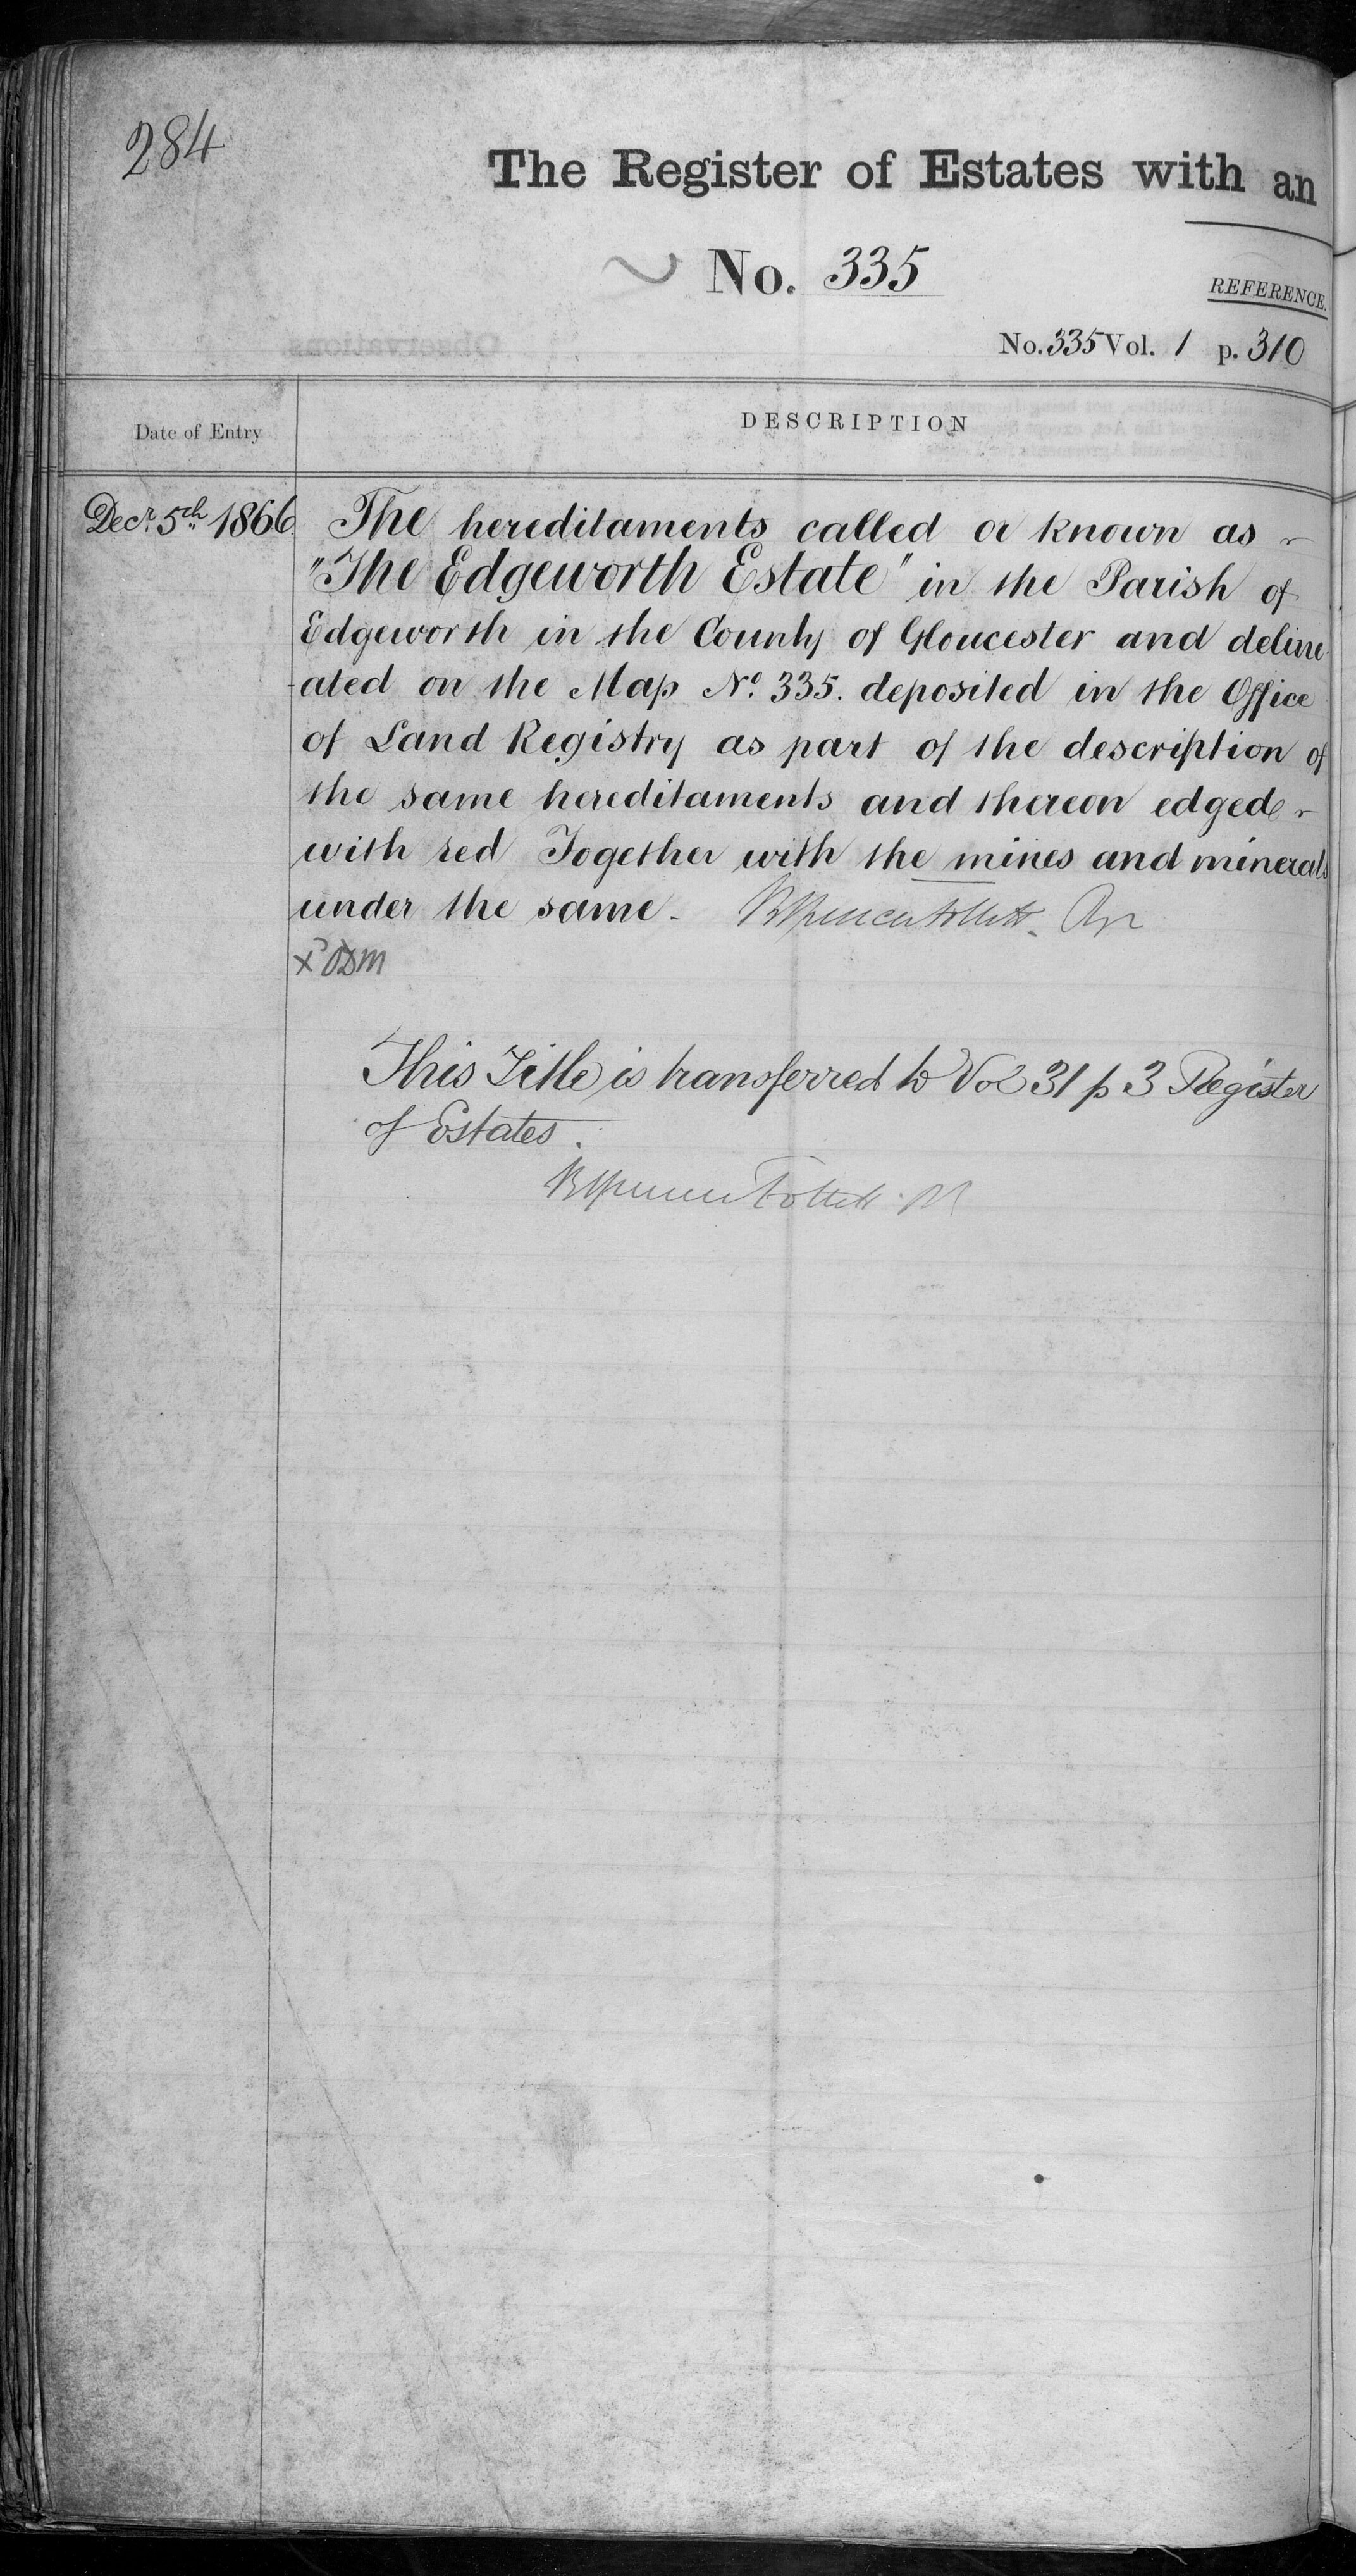 284
The Register of Estates with an
No. 335
REFERENCE.
No. 335 Vol. 1 p. 310
Observations
Date of Entry
DESCRIPTION
Decr. 5th 1866. The hereditaments called or known as
"The Edgeworth Estate" in the Parish of
Edgeworth in the County of Gloucester and deline
-ated on the Map No. 335. deposited in the Office
of Land Registry as part of the description of
the same hereditaments and thereon edged
with red Together with the mines and minerals
under the same - Follett.
This Title is transferred to Vol 31 p 3 Register
of Estates.
Follett